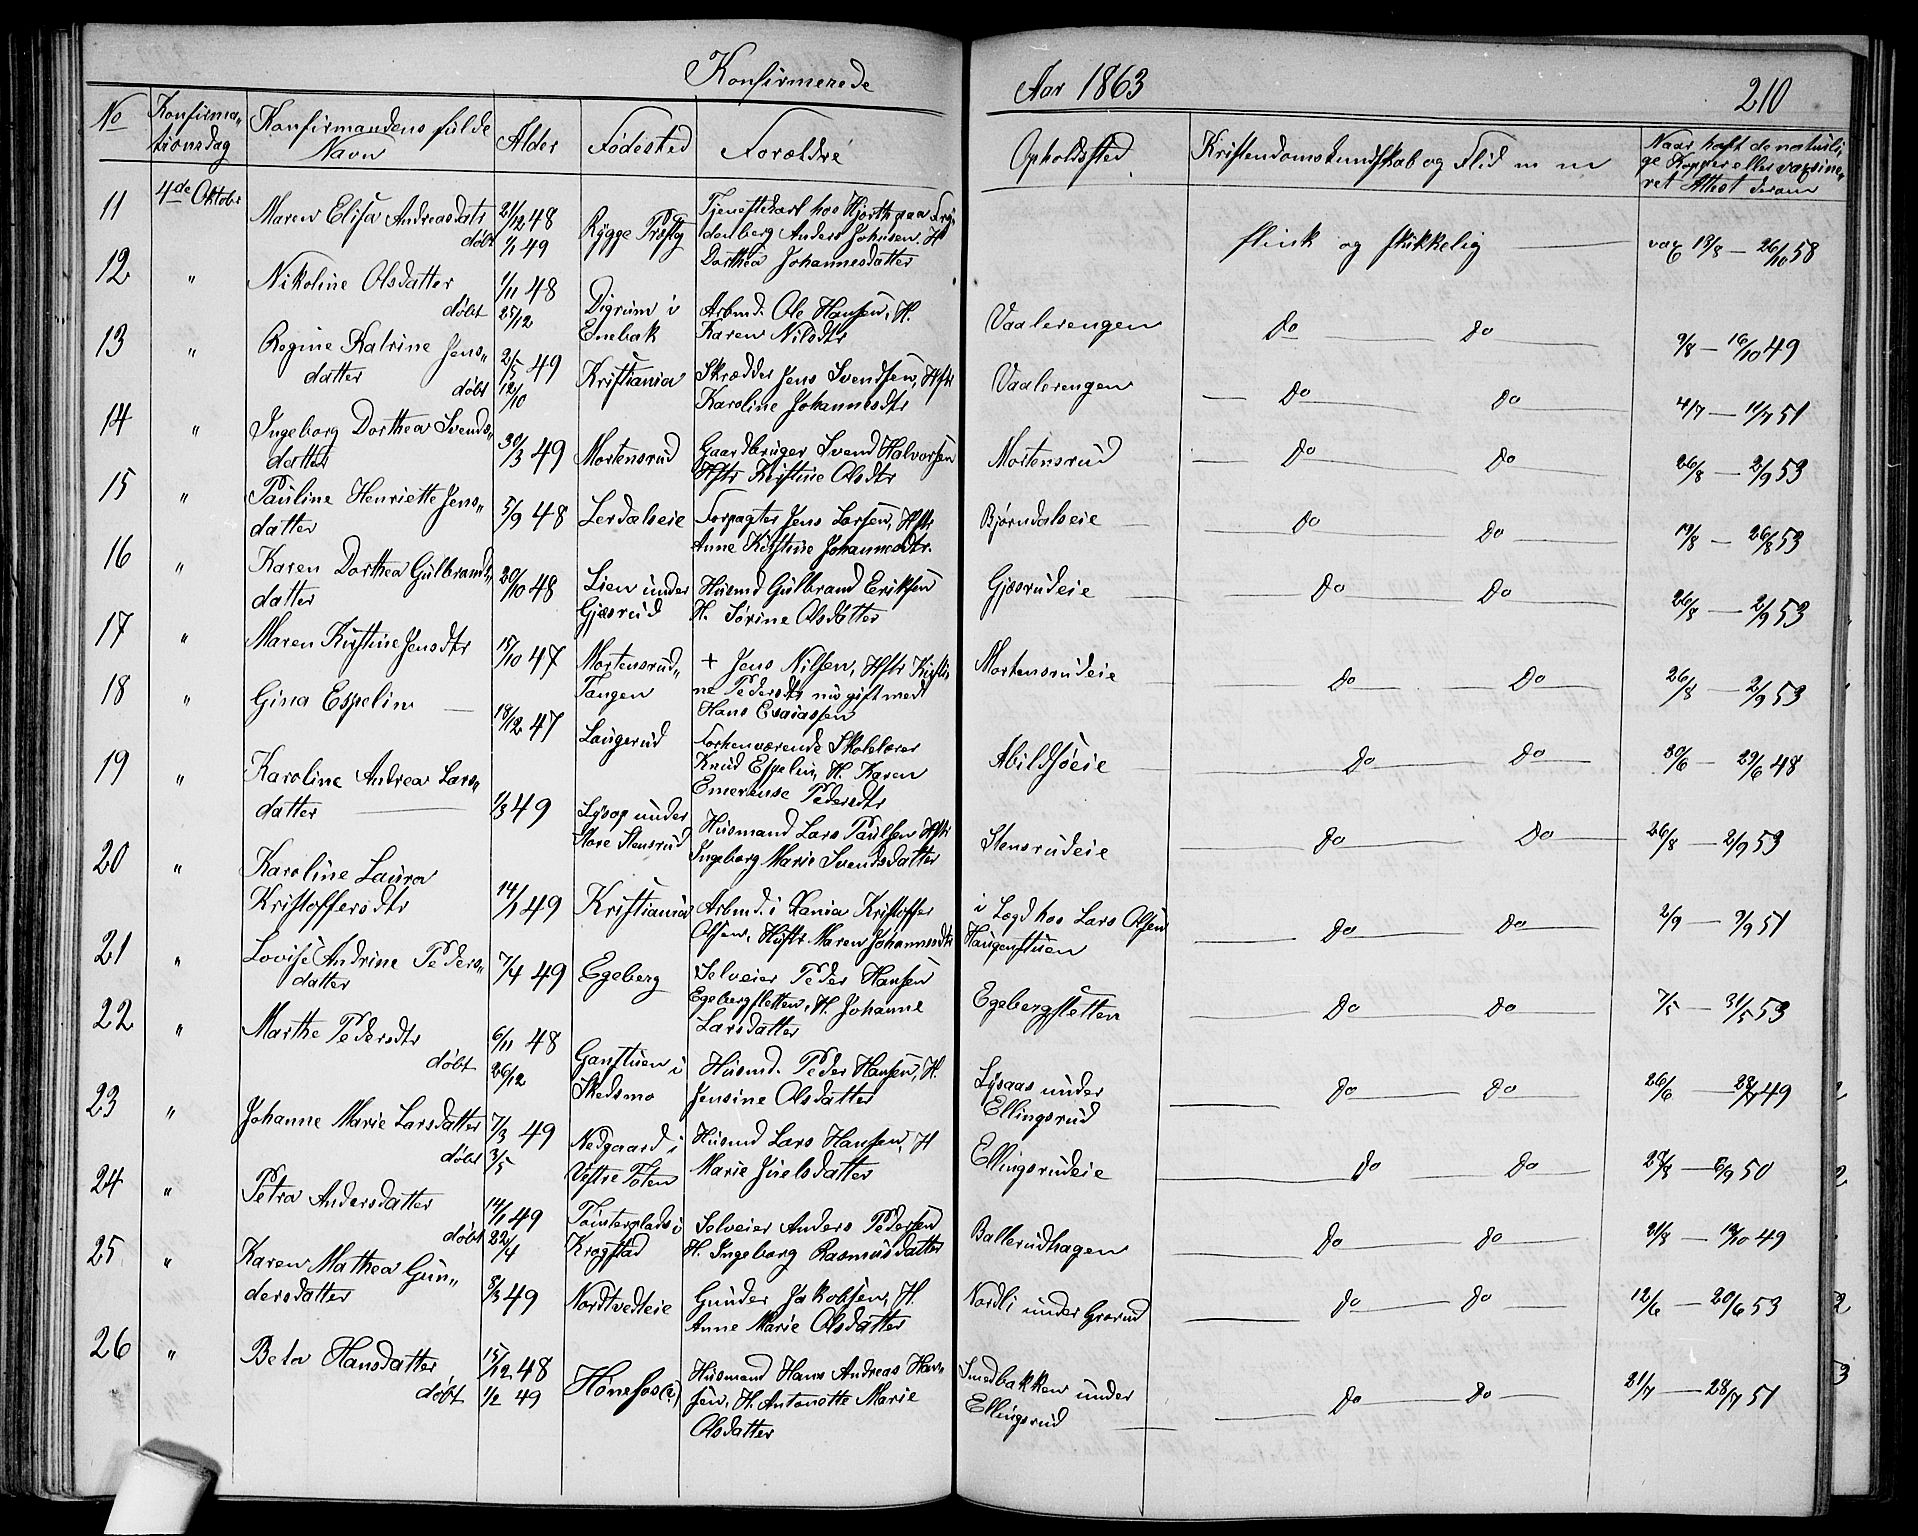 Konfirmerede Aar 1863 210
No Konfirma„ Konfirmandens fulde Alder Fødested Forældre Opholdssted Kristendomskundskab og Flid m m Naar haft de naturli„
tionsdag Navn ge Kopper eller vaxine„
ret Attest derom
11 4de Oktober Maren Elisa Andreasdatr 21/12 48 Rygge Præstg Tjenestekarl hos Hjorth paa Fry„
døbt 1/1 49 denberg Anders Johnsen, H flink og skikkelig vax 18/8 — 26/10 58
Dorthea Johannesdatter
12 „ Nikoline Olsdatter 1/11 48 Digrum i Arbmd. Ole Hansen, H. Vaalerengen Do Do 9/8 — 16/10 49
døbt 25/12 Enebak Karen Nilsdtr
13 „ Regine Katrine Jens„ 2/5 49 Kristiania Skrædder Jens Svendsen, Hstr Vaalerengen Do Do 4/7 — 11/7 51
datter døbt 12/10 Karoline Johannesdtr
14 „ Ingeborg Dorthea Svends„ 30/3 49 Mortensrud Gaardbruger Svend Halvorsen Mortensrud Do Do 26/8 — 2/9 53
datter Hstr Kirstine Olsdtr
15 „ Pauline Henriette Jens„ 5/9 48 Lerdalseie Forpagter Jens Larsen, Hstr Bjørndalseie Do Do 19/8 — 26/8 53
datter Anne Kirstine Johannesdtr.
16 „ Karen Dorthea Gulbrands„ 20/10 48 Lien under Husmd Gulbrand Eriksen Gjæsrudeie Do Do 26/8 — 2/9 53
datter Gjæsrud H. Sørine Olsdatter
17 „ Maren Kirstine Jensdtr 15/10 47 Mortensrud„ + Jens Nilsen, Hstr Kirsti„ Mortensrudeie Do Do 26/8 — 2/9 53
Tangen ne Pedersdtr nu gift med
Hans Esaiassen
18 „ Gina Espelin 18/12 47 Laugerud Forhenværende Skolelærer Abildsøeie Do Do 30/6 — 29/6 48
Knud Espelin, H. Karen
Emerense Pedersdtr
19 „ Karoline Andrea Lars„ 1/3 49 Lysop under Husmand Lars Paulsen Hstr Stensrudeie Do Do 26/8 — 2/9 53
datter Store Stensrud Ingeborg Marie Svendsdatter
20 „ Karoline Laura 14/1 49 Kristiania Arbmd. i Xania Kristoffer i Lægd hos Lars Olsen Do Do 2/9 — 9/9 51
Kristoffersdtr Olsen, Hustr. Maren Johannesdtr Haugenstuen
21 „ Lovise Andrine Peders„ 7/4 49 Egeberg Selveier Peder Hansen Egebergsletten Do Do 7/5 — 31/5 53
datter Egebergsletten, H. Johanne
Larsdatter
22 „ Marthe Pedersdtr 6/11 48 Ganstuen i Husmd. Peder Hansen, H. Lysaas under Do Do 26/6 — 49
døbt 26/12 Skedsmo Jensine Olsdatter Ellingsrud
23 „ Johanne Marie Larsdatter 7/3 49 Nedgaard i Husmd Lars Hansen, H Ellingsrudeie Do Do 50
døbt 3/5 Vestre Toten Marie Juelsdatter
24 „ Petra Andersdatter 14/1 49 i Selveier Anders Pedersen Ballerudhagen Do Do 31/8 — 49
døbt 22/4 Krogstad H. Ingeborg Rasmusdatter
25 „ Karen Mathea Gun„ 8/3 49 Nordtvedteie Gunder Jakobsen, H. Nordli under Grorud Do Do 12/6 — 20/6 53
dersdatter Anne Marie Olsdatter
26 „ Beta Hansdatter 15/12 48 Hønefos(?) Husmand Hans Andreas Han„ Smedbakken under Do Do 21/7 — 28/7 51
døbt 1/2 49 sen, H. Antonette Marie Ellingsrud
Olsdatter